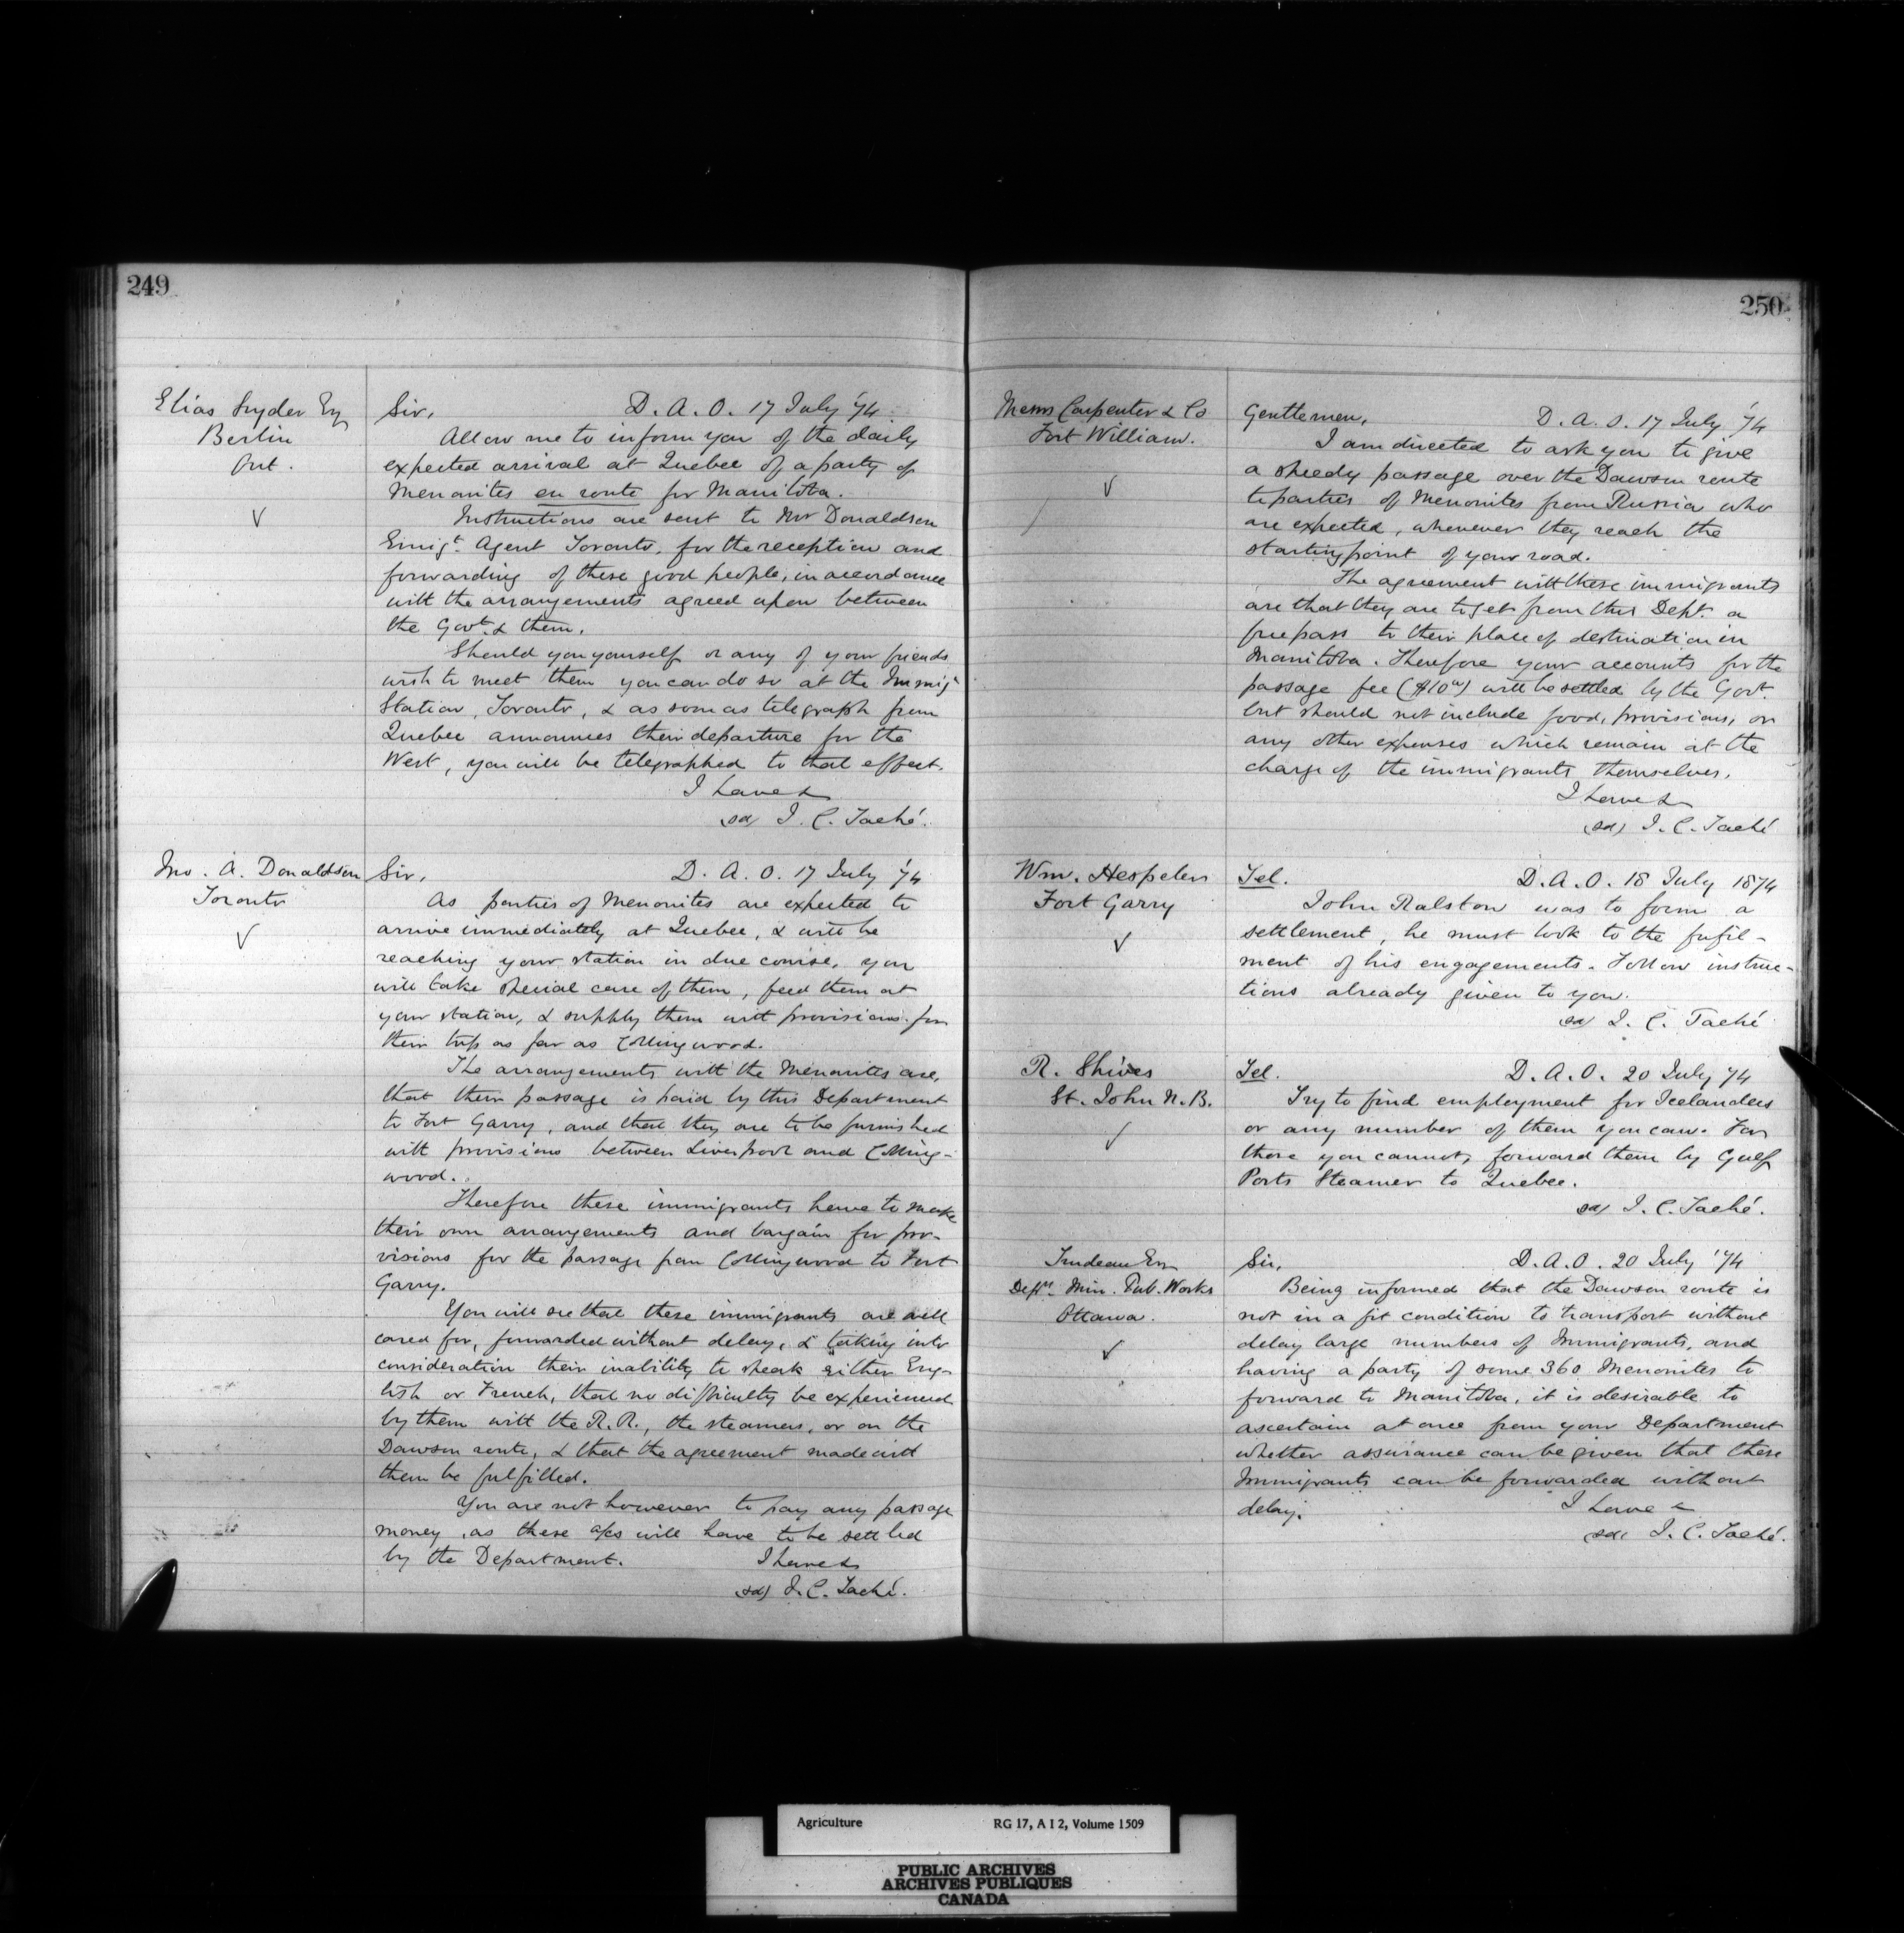 249
Elias Snyder Esq
Berlin
Ont.
Sir, D. A. O. 17 July '74
Allow me to inform you of the daily
expected arrival at Quebec of a party of
Menonites en route for Manitoba.
Instructions are sent to Mr Donaldson
Emigt. Agent Toronto, for the reception and
forwarding of these good people, in accordance
with the arrangements agreed upon between
the Govt. & them.
Should you yourself or any of your friends
wish to meet them you can do so at the Immigt
Station, Toronto, & as soon as telegraph from
Quebec announces their departure for the
West, you will be telegraphed to that effect.
I have &
(sd) J. C. Taché.
Jno. A. Donaldson
Toronto
Sir, D. A. O. 17 July '74
As parties of Menonites are expected to
arrive immediately at Quebec, & will be
reaching your station in due course, you
will take special care of them, feed them at
your station, & supply them with provisions for
their trip as far as Collingwood.
The arrangements with the Menonites are,
that their passage is paid by this Department
to Fort Garry, and that they are to be furnished
with provisions between Liverpool and Colling-
wood.
Therefore these immigrants have to make
their own arrangements and bargain for pro-
visions for the passage from Collingwood to Fort
Garry.
You will see that these immigrants are well
cared for, forwarded without delay, & taking into
consideration their inability to speak either Eng-
lish or French, that no difficulty be experienced
by them with the R.R., the steamers, or on the
Dawson route, & that the agreement made with
them be fulfilled.
You are not however to pay any passage
money, as these a/cs will have to be settled
by the Department. I have &
(sd) J. C. Taché.
250
Messrs Carpenter & Co
Fort William.
Gentlemen, D. A. O. 17 July '74
I am directed to ask you to give
a speedy passage over the Dawson route
to parties of Menonites from Russia who
are expected, whenever they reach the
starting point of your road.
The agreement with these immigrants
are that they are to get from this Dept. a
free pass to their place of destination in
Manitoba. Therefore your accounts for the
passage fee ($10 00) will be settled by the Govt.
but should not include food, provisions, or
any other expenses which remain at the
charge of the immigrants themselves.
I have &
(sd) J. C. Taché
Wm. Hespeler
Fort Garry
Tel. D. A. O. 18 July 1874
John Ralston was to form a
settlement, he must look to the fufil-
ment of his engagements. Follow instruc-
tions already given to you.
sd) J. C. Taché
R. Shives
St. John N. B.
Tel. D. A. O. 20 July 74
Try to find employment for Icelanders
or any number of them you can. For
those you cannot, forward them by Gulf
Ports Steamer to Quebec.
sd) J. C. Taché.
Trudeau Esq
Depty. Min. Pub. Works
Ottawa.
Sir, D. A. O. 20 July '74
Being informed that the Dawson route is
not in a fit condition to transport without
delay large numbers of Immigrants, and
having a party of some 360 Menonites to
forward to Manitoba, it is desirable to
ascertain at once from your Department
whether assurance can be given that these
Immigrants can be forwarded without
delay. I have &
(sd) J. C. Taché.
Agriculture RG 17, A I 2, Volume 1509
PUBLIC ARCHIVES
ARCHIVES PUBLIQUES
CANADA